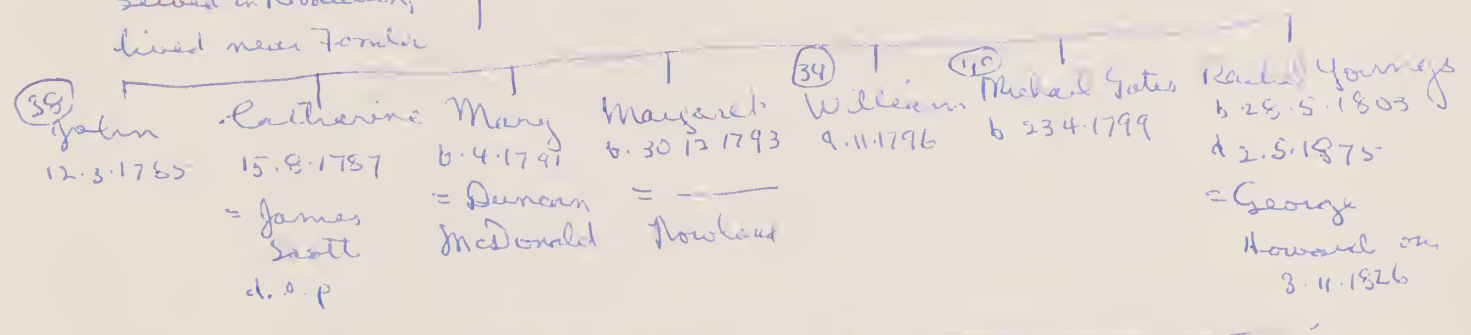 Served in Revolution,
lived near Fonda
38 John
12.3.1785
Catherine
15.8.1787
= James
Scott
d.s.p
Mary
b.4.1791
= Duncan
McDonald
Margaret
b. 30 12 1793
= —
Rowland
34 William
9.11.1796
Michael Yates
b 23 4.1799
Rachel Youngs
b 28.5.1803
d 2.5.1875
= George
Howard on
3.11.1826